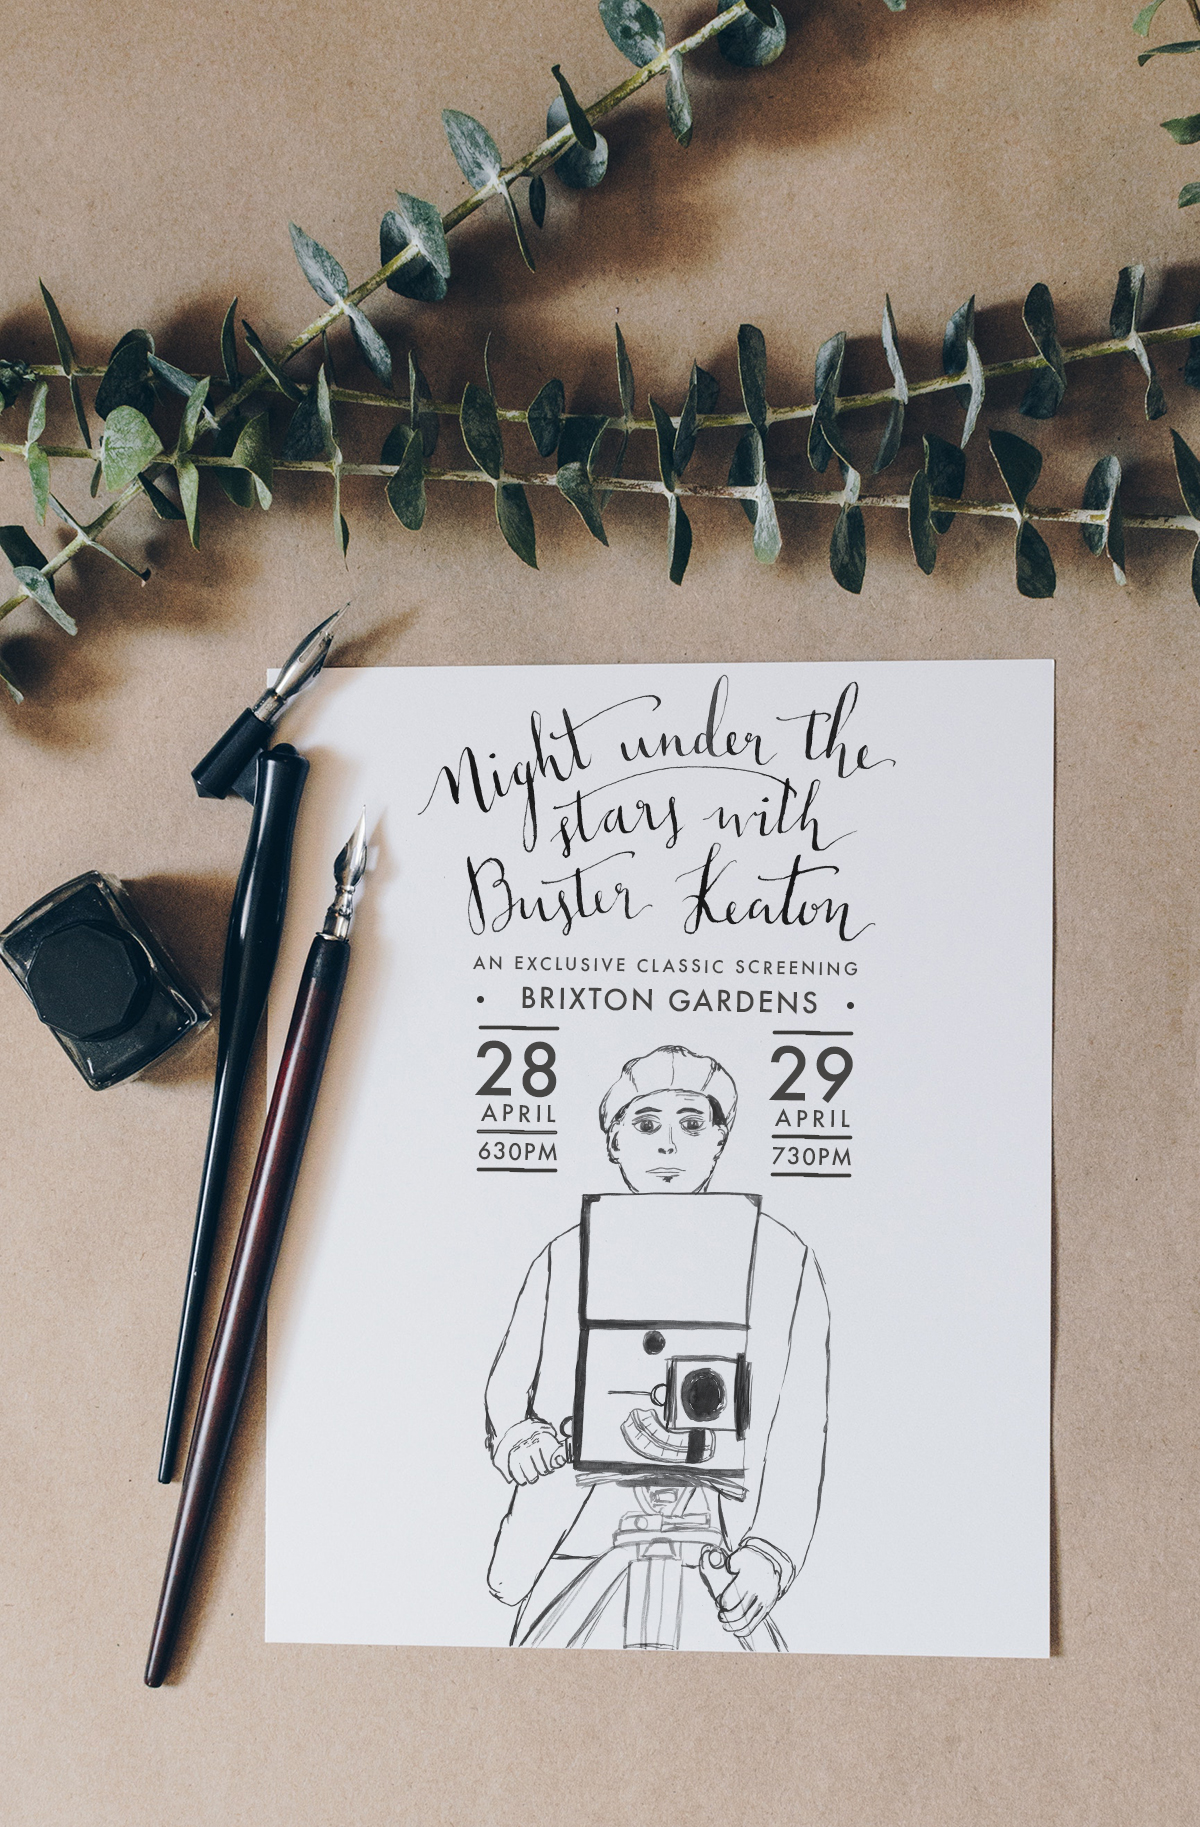 Night under the
stars with
Buster Keaton
AN EXCLUSIVE CLASSIC SCREENING
• BRIXTON GARDENS •
28
APRIL
630PM
29
APRIL
730PM